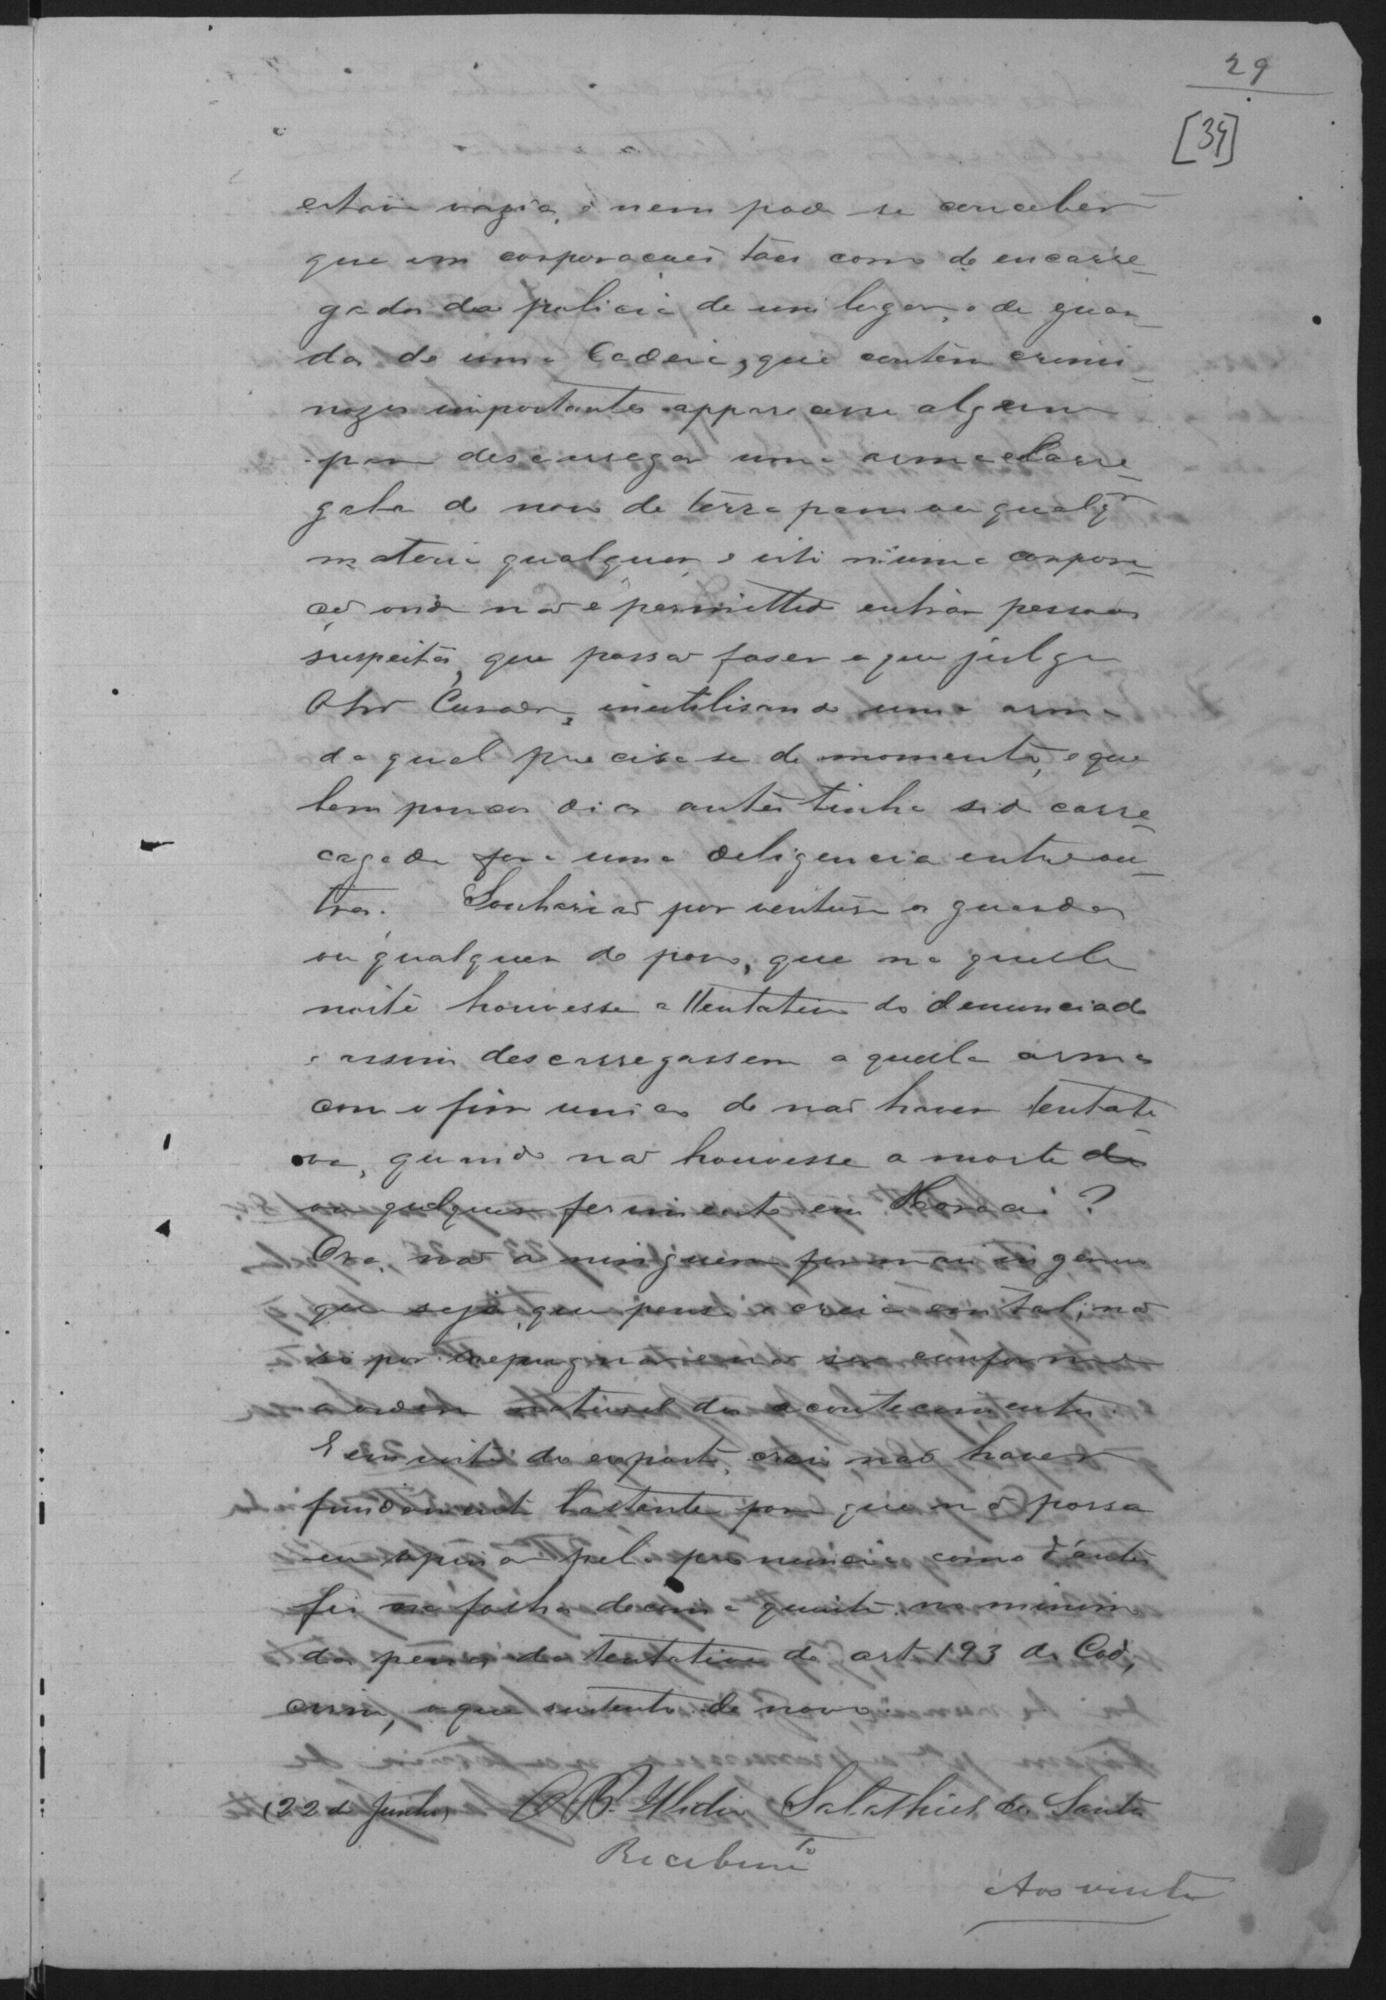 29
[34]
estava vazia, e nem pode se conceber
que em corporações taes como de encarre-
gados da policia de um lugar, e de guar-
da de uma Cadeia, que contêm crimi-
nozos importantes apparecesse alguem
para descarregar uma arma carre-
gada de novo de terra para ou qualqr
materia qualquer e isto n'uma corpora-
ção onde não é permittido entrar pessoas
suspeitas, que possa faser o que julga
O Snr Curador, inutilisando uma arma
da qual precisa se de momento, e que
bem poucos dias antes tinha sido carre-
cagada para uma deligencia entre ou-
tras. Sonharião por ventura os guardas
ou qualquer do povo, que na quella
noite houvesse a tentativa do denunciado
e assim descarregassem aquella arma
com o fim unico de não haver tentati
va, quando não houvesse a morte do
ou qualquer ferimento em Horacio?
Ora, não a ninguem por mais ingenuo
que seja, que pense e creia em tal, não
só por repugnar e não ser conforme
a ordem natural dos acontecimentos.
E em vista do exposto, creio não haver
fundamento bastante para que não possa
eu opinar pela pronuncia como d'antes
fis na folha decima quinta no minimo
das penas da tentativa do art 193 do Cod,
crim, o que sustento de novo.
(22 de Junho) O P. Salathiel dos Santos
Recebimto
Aos vinte